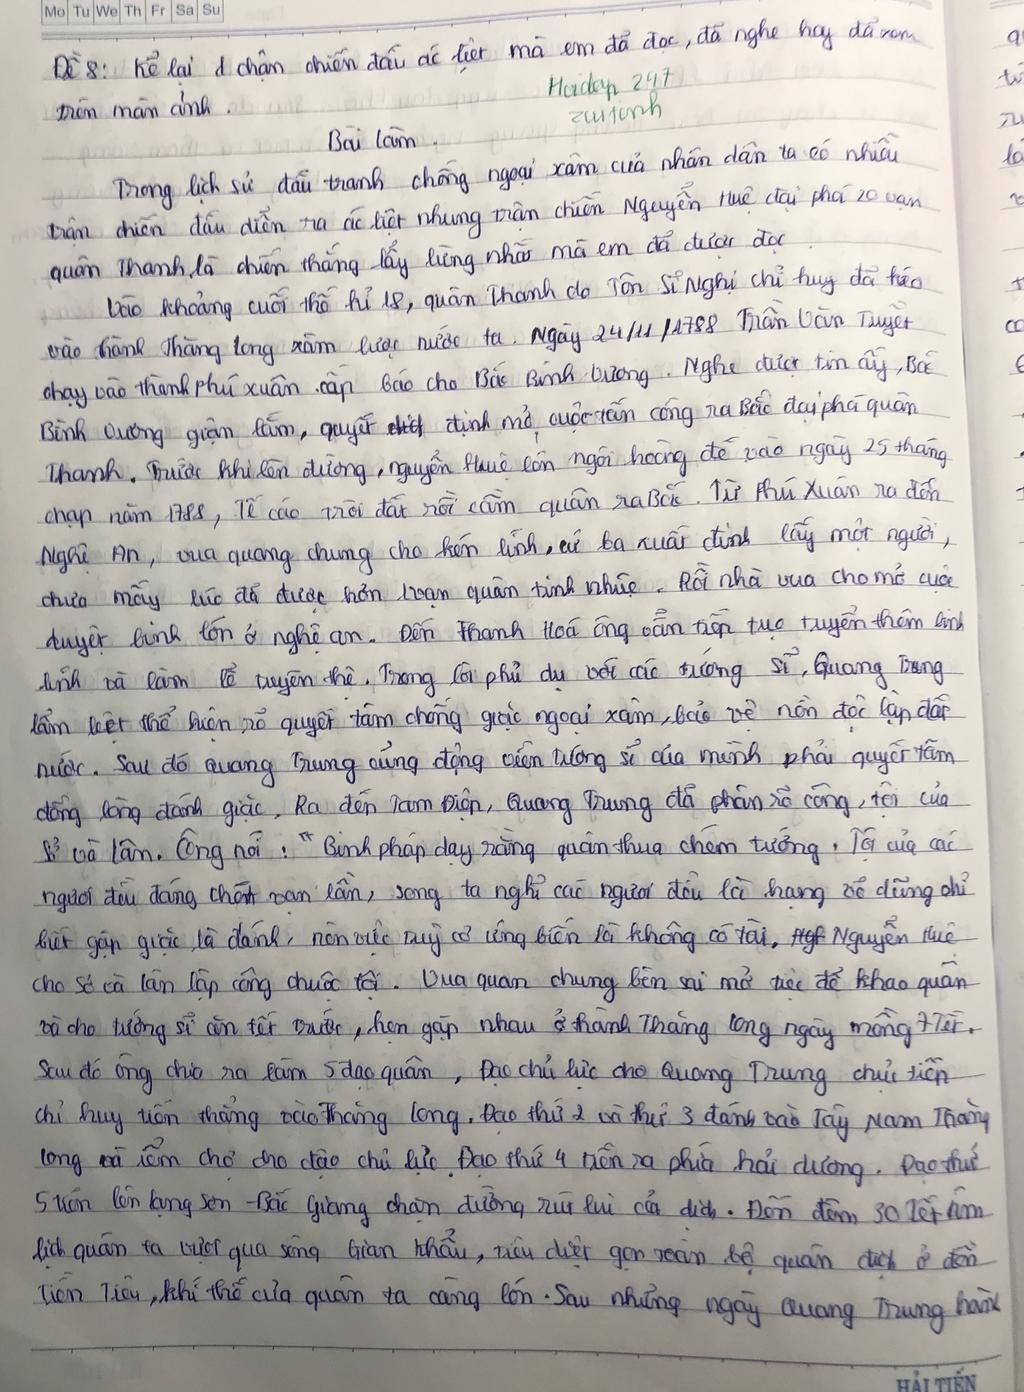 Mo Tu We Th Fr Sa Su
Đề 8: Kể lại 1 chận chiến đấu ác liệt mà em đã đọc, đã nghe hay đã xem
trên màn ảnh.
Hoidap 247
zutinh
Bài làm.
Trong lịch sử đấu tranh chống ngoại xâm của nhân dân ta có nhiều
trận chiến đấu diễn ra ác liệt nhưng trận chiến Nguyễn Huệ đại phá 20 vạn
quân Thanh là chiến thắng lẫy lừng nhất mà em đã được đọc.
Vào khoảng cuối thế kỉ 18, quân Thanh do Tôn Sĩ Nghị chỉ huy đã kéo
vào thành Thăng Long xâm lược nước ta. Ngày 24/11/1788 Trần Văn Tuyết
chạy vào thành phú xuân cấp báo cho Bắc Bình Vương. Nghe được tin ấy, Bắc
Bình Vương giận lắm, quyết định mở cuộc tấn công ra Bắc đại phá quân
Thanh. Trước khi lên đường, nguyễn Huệ lên ngôi hoàng đế vào ngày 25 tháng
chạp năm 1788, Tế cáo trời đất rồi cầm quân ra Bắc. Từ Phú Xuân ra đến
Nghệ An, vua quang chung cho kén lính, cứ ba xuất đinh lấy một người,
chưa mấy lúc đã được hơn 1 vạn quân tinh nhuệ. Rồi nhà vua cho mở cuộc
duyệt binh lớn ở nghệ an. Đến Thanh Hoá ông vẫn tiếp tục tuyển thêm binh
lính và làm lễ tuyên thệ. Trong lời phủ dụ với các tướng sĩ, Quang Trung
lẫm liệt thể hiện rõ quyết tâm chống giặc ngoại xâm, bảo vệ nền độc lập đất
nước. Sau đó Quang Trung cũng động viên tướng sĩ của mình phải quyết tâm
đồng lòng đánh giặc. Ra đến Tam Điệp, Quang Trung đã phân rõ công, tội của
Sở và Lân. Ông nói: "Binh pháp dạy rằng quân thua chém tướng. Tội của các
ngươi đều đáng chết vạn lần, song ta nghĩ các ngươi đều là hạng võ dũng chỉ
biết gặp giặc là đánh, nên việc tuỳ cơ ứng biến là không có tài. Nguyễn Huệ
cho Sở và Lân lập công chuộc tội. Vua quan chung bèn sai mở tiệc để khao quân
và cho tướng sĩ ăn tết trước, hẹn gặp nhau ở thành Thăng Long ngày mồng 7 Tết.
Sau đó ông chia ra làm 5 đạo quân, Đạo chủ lực do Quang Trung chực tiếp
chỉ huy tiến thẳng vào Thăng Long. Đạo thứ 2 và thứ 3 đánh vào Tây Nam Thăng
Long và iểm chợ cho đạo chủ lực. Đạo thứ 4 tiến ra phía hải dương. Đạo thứ
5 tiến lên lạng sơn - Bắc Giang chặn đường rút lui của địch. Đến đêm 30 Tết âm
lịch quân ta vượt qua sông Gián Khẩu, tiêu diệt gọn toàn bộ quân địch ở đồn
Tiền Tiêu, khí thế của quân ta càng lớn. Sau những ngày Quang Trung hành
HẢI TIẾN